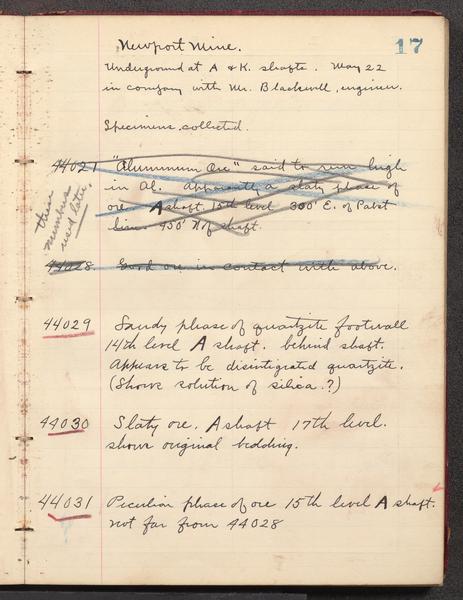 Newport Mine.
17
Underground at A & K shafts. May 22
in company with Mr. Blackwell, engineer.
Specimens collected.
44027 "Aluminum Ore" said to run high
in Al. Apparently a slaty phase of
ore A shaft 15th level 300' E. of Pabst
line. 450' N of shaft.
these
numbers
used later.
44028 Good ore in contact with above.
44029 Sandy phase of quartzite footwall
14th level A shaft. behind shaft.
Appears to be disintigrated quartzite.
(Shows solution of silica.?)
44030 Slaty ore. A shaft 17th level.
shows original bedding.
44031 Peculiar phase of ore 15th level A shaft.
not far from 44028